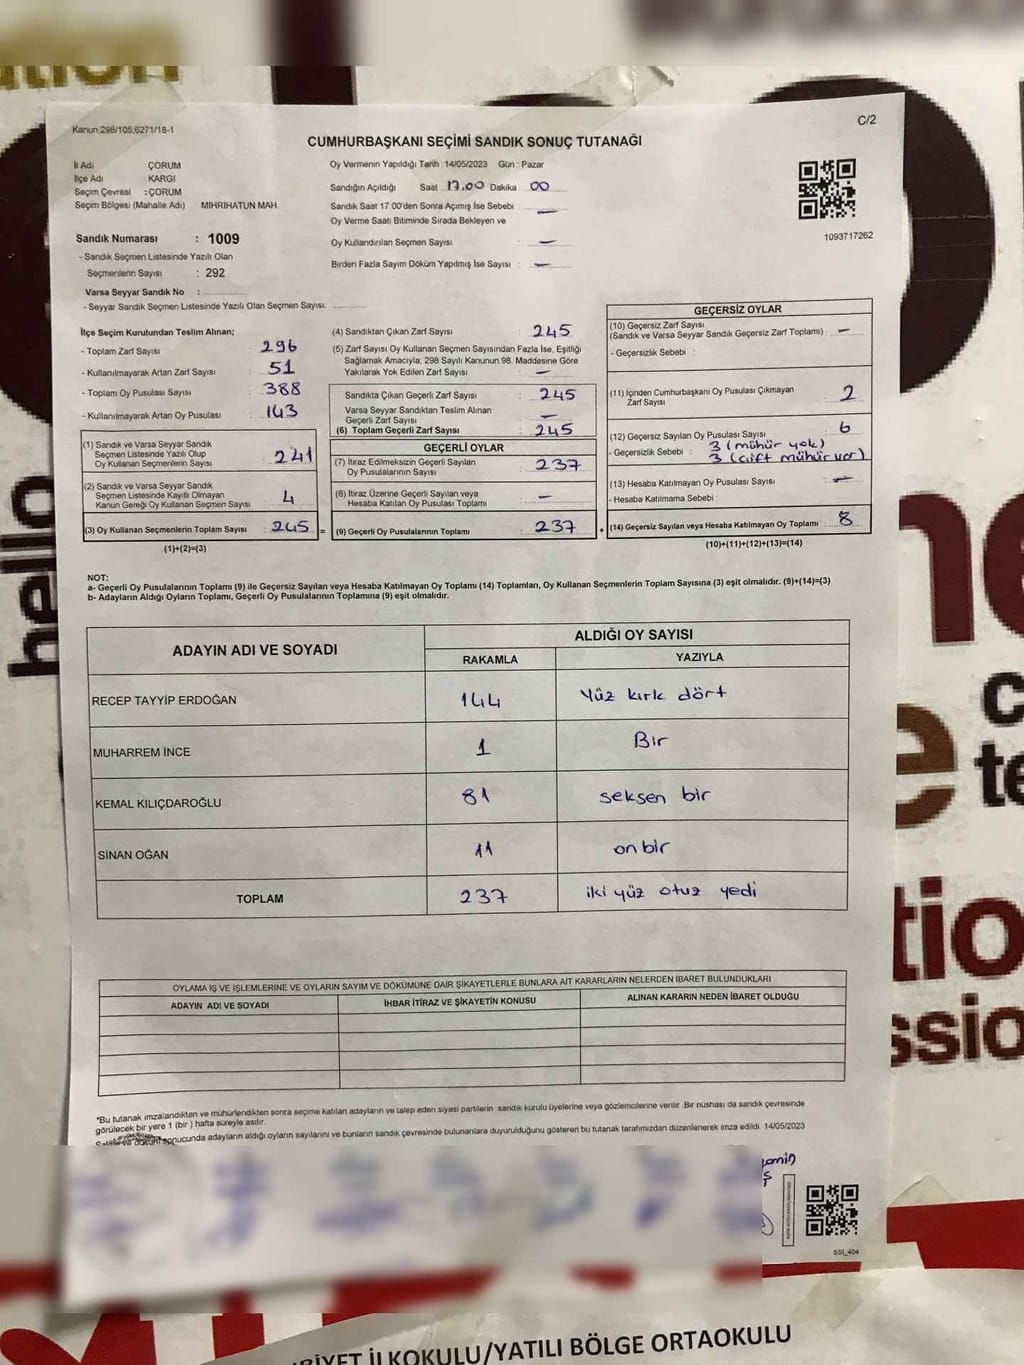 ation
Kanun,298/105,6271/18-1
C/2
CUMHURBAŞKANI SEÇİMİ SANDIK SONUÇ TUTANAĞI
İl Adı ÇORUM
İlçe Adı KARGI
Seçim Çevresi :ÇORUM
Seçim Bölgesi (Mahalle Adı) MİHRİHATUN MAH.
Sandık Numarası : 1009
- Sandık Seçmen Listesinde Yazılı Olan
Seçmenlerin Sayısı : 292
Varsa Seyyar Sandık No :
- Seyyar Sandık Seçmen Listesinde Yazılı Olan Seçmen Sayısı:
Oy Vermenin Yapıldığı Tarih : 14/05/2023 Gün : Pazar
Sandığın Açıldığı Saat 17.00 Dakika 00
Sandık Saat 17:00'den Sonra Açımış İse Sebebi : —
Oy Verme Saati Bitiminde Sırada Bekleyen ve
Oy Kullandırılan Seçmen Sayısı : —
Birden Fazla Sayım Döküm Yapılmış İse Sayısı : —
1093717262
İlçe Seçim Kurulundan Teslim Alınan;
- Toplam Zarf Sayısı : 296
- Kullanılmayarak Artan Zarf Sayısı : 51
- Toplam Oy Pusulası Sayısı : 388
- Kullanılmayarak Artan Oy Pusulası : 143
(1) Sandık ve Varsa Seyyar Sandık
Seçmen Listesinde Yazılı Olup
Oy Kullanan Seçmenlerin Sayısı : 241
(2) Sandık ve Varsa Seyyar Sandık
Seçmen Listesinde Kayıtlı Olmayan
Kanun Gereği Oy Kullanan Seçmen Sayısı : 4
(3) Oy Kullanan Seçmenlerin Toplam Sayısı : 245 =
(1)+(2)=(3)
(4) Sandıktan Çıkan Zarf Sayısı : 245
(5) Zarf Sayısı Oy Kullanan Seçmen Sayısından Fazla İse, Eşitliği
Sağlamak Amacıyla, 298 Sayılı Kanunun 98. Maddesine Göre
Yakılarak Yok Edilen Zarf Sayısı : —
Sandıkta Çıkan Geçerli Zarf Sayısı : 245
Varsa Seyyar Sandıktan Teslim Alınan
Geçerli Zarf Sayısı : —
(6) Toplam Geçerli Zarf Sayısı : 245
GEÇERLİ OYLAR
(7) İtiraz Edilmeksizin Geçerli Sayılan
Oy Pusulalarının Sayısı : 237
(8) İtiraz Üzerine Geçerli Sayılan veya
Hesaba Katılan Oy Pusulası Toplamı : —
(9) Geçerli Oy Pusulalarının Toplamı : 237 +
GEÇERSİZ OYLAR
(10) Geçersiz Zarf Sayısı
(Sandık ve Varsa Seyyar Sandık Geçersiz Zarf Toplamı) : —
- Geçersizlik Sebebi :
(11) İçinden Cumhurbaşkanı Oy Pusulası Çıkmayan
Zarf Sayısı : 2
(12) Geçersiz Sayılan Oy Pusulası Sayısı : 6
- Geçersizlik Sebebi : 3 (mühür yok)
3 (çift mühür var)
(13) Hesaba Katılmayan Oy Pusulası Sayısı : —
- Hesaba Katılmama Sebebi :
(14) Geçersiz Sayılan veya Hesaba Katılmayan Oy Toplamı : 8
(10)+(11)+(12)+(13)=(14)
NOT:
a- Geçerli Oy Pusulalarının Toplamı (9) ile Geçersiz Sayılan veya Hesaba Katılmayan Oy Toplamı (14) Toplamları, Oy Kullanan Seçmenlerin Toplam Sayısına (3) eşit olmalıdır. (9)+(14)=(3)
b- Adayların Aldığı Oyların Toplamı, Geçerli Oy Pusulalarının Toplamına (9) eşit olmalıdır.
ADAYIN ADI VE SOYADI
ALDIĞI OY SAYISI
RAKAMLA YAZIYLA
RECEP TAYYİP ERDOĞAN 144 Yüz kırk dört
MUHARREM İNCE 1 Bir
KEMAL KILIÇDAROĞLU 81 seksen bir
SİNAN OĞAN 11 on bir
TOPLAM 237 iki yüz otuz yedi
OYLAMA İŞ VE İŞLEMLERİNE VE OYLARIN SAYIM VE DÖKÜMÜNE DAİR ŞİKAYETLERLE BUNLARA AİT KARARLARIN NELERDEN İBARET BULUNDUKLARI
ADAYIN ADI VE SOYADI İHBAR İTİRAZ VE ŞİKAYETİN KONUSU ALINAN KARARIN NEDEN İBARET OLDUĞU
*Bu tutanak imzalandıktan ve mühürlendikten sonra seçime katılan adayların ve talep eden siyasi partilerin sandık kurulu üyelerine veya gözlemcilerine verilir. Bir nüshası da sandık çevresinde
görülecek bir yere 1 (bir) hafta süreyle asılır.
sonucunda adayların aldığı oyların sayılarını ve bunların sandık çevresinde bulunanlara duyurulduğunu gösteren bu tutanak tarafımızdan düzenlenerek imza edildi. 14/05/2023
hello
ne
c
e
te
tio
ssio
İLKOKULU/YATILI BÖLGE ORTAOKULU